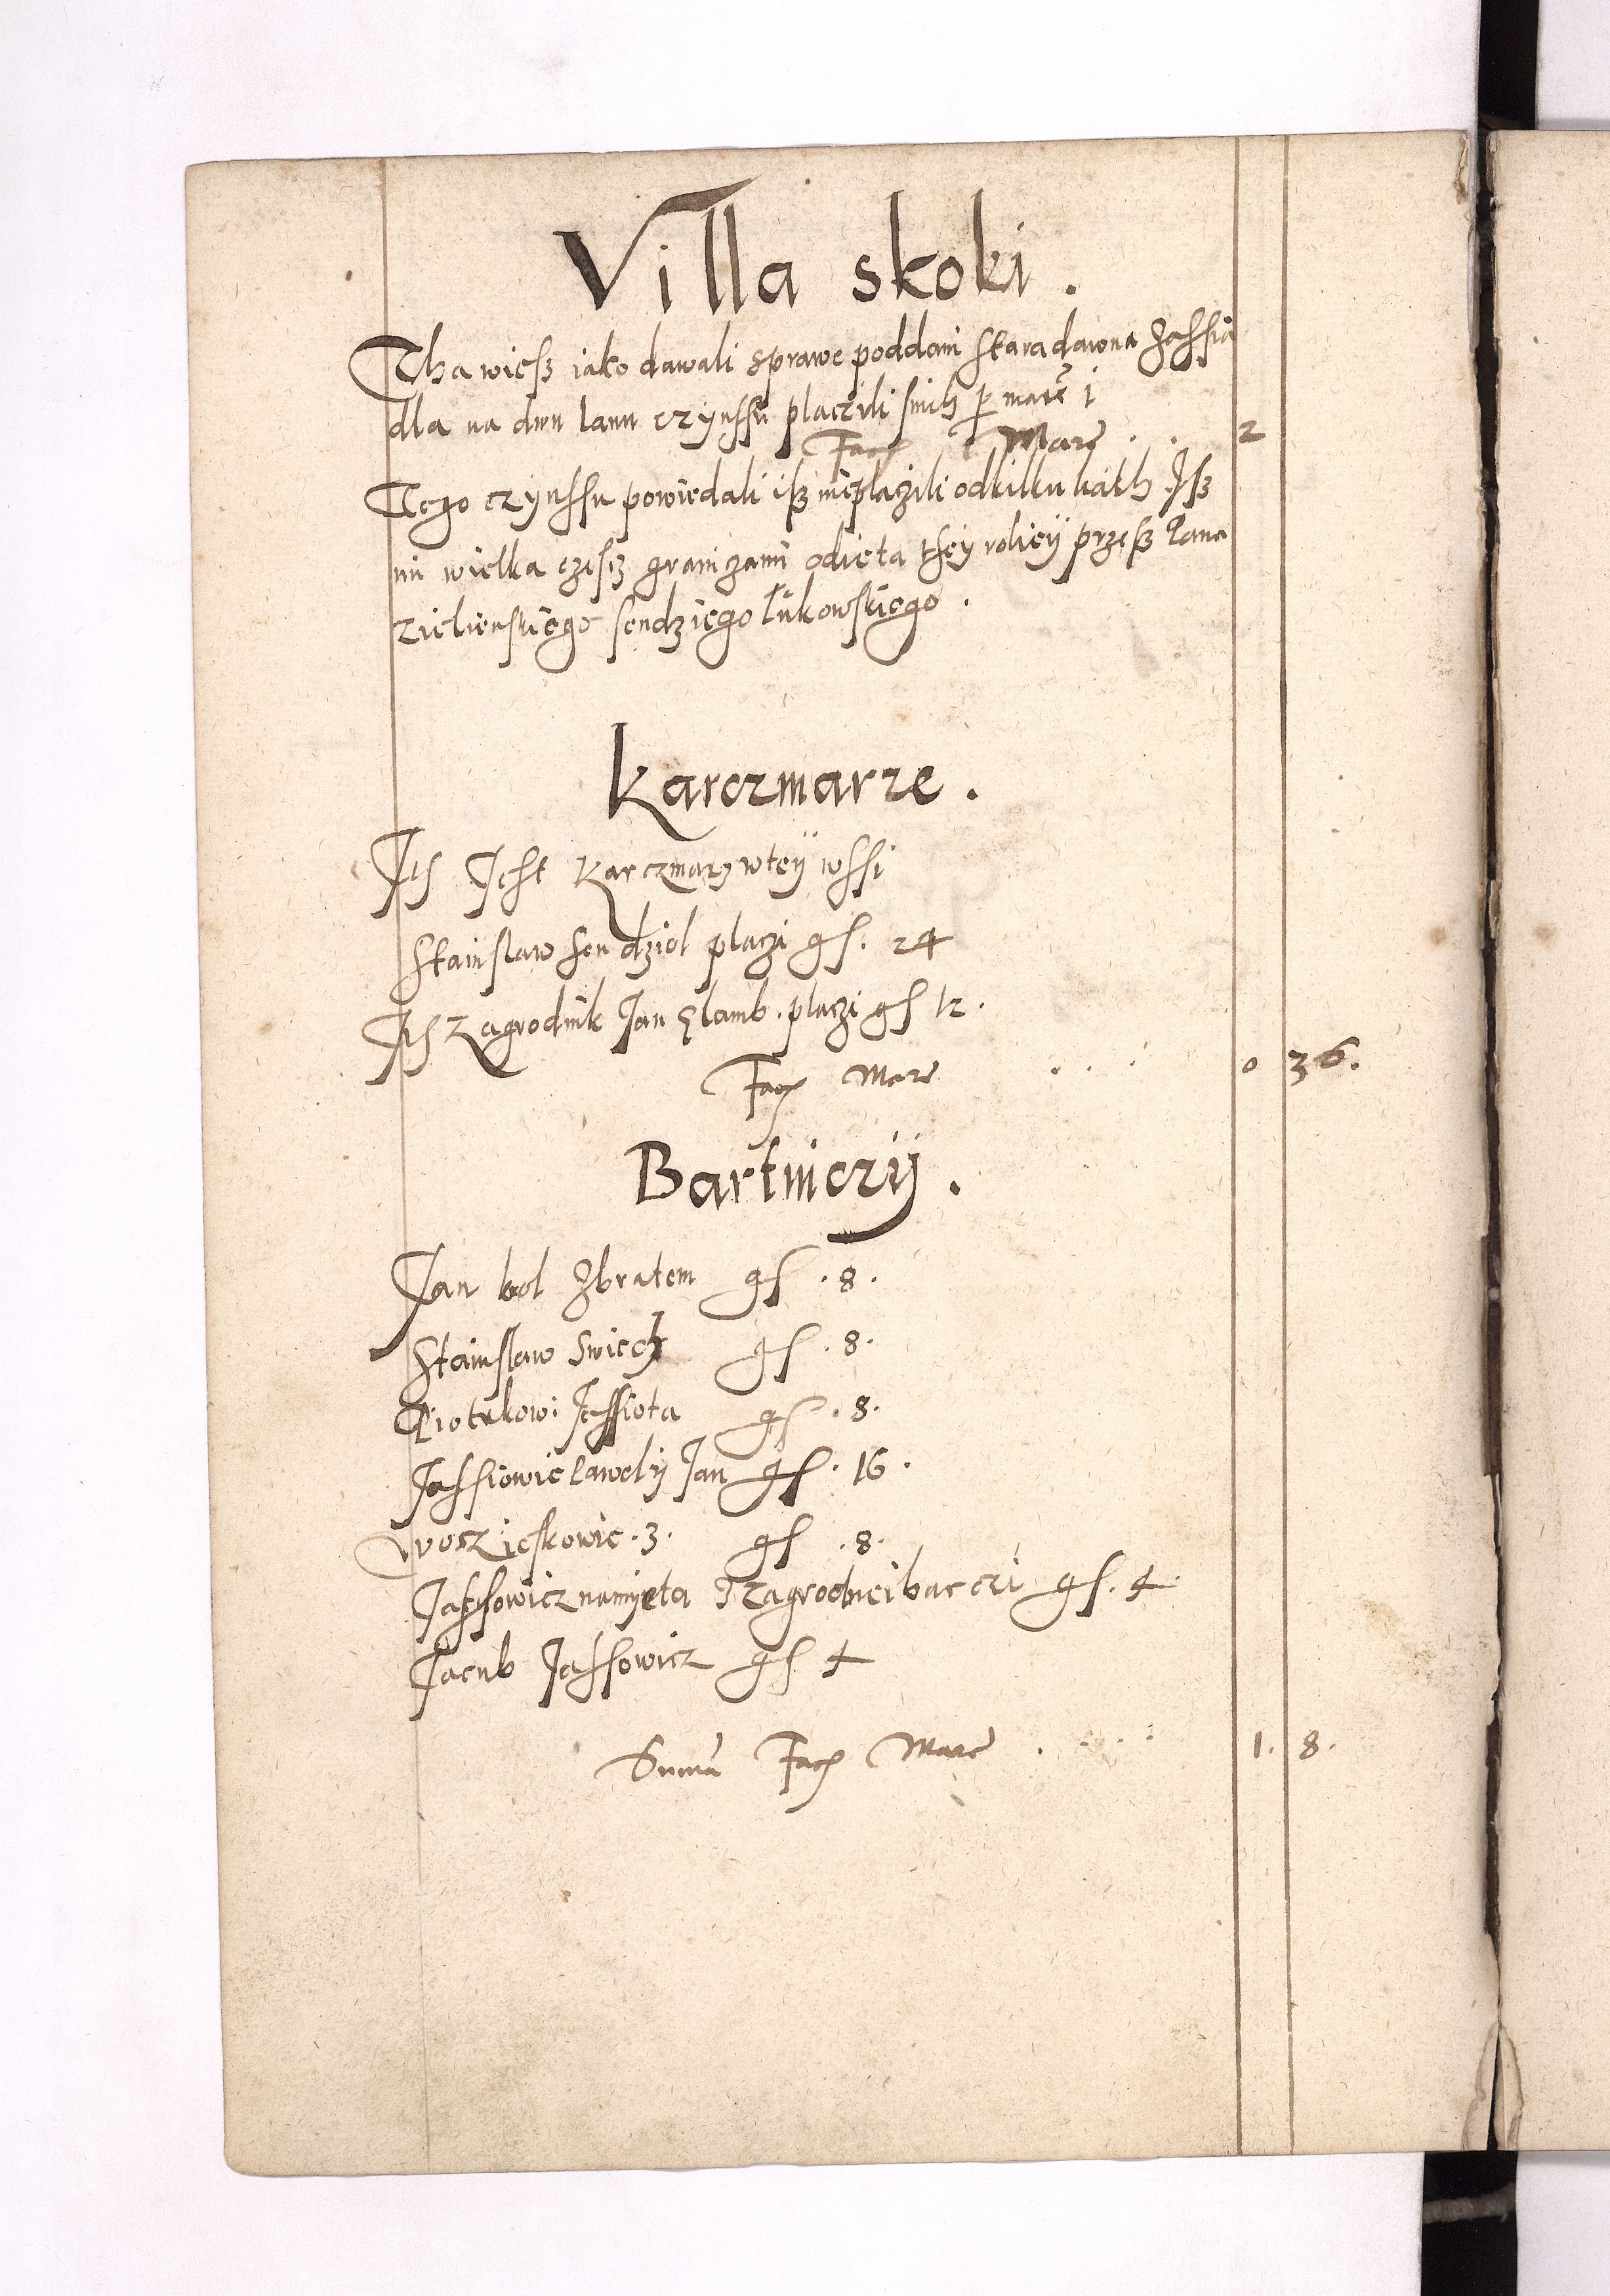 Villa skoki .
Tha wiesz iako dawali sprawe poddani staradawna Zassia
dla na dwu lanu czynssu placzili snich per marc i
Facit Marc . . 2
Tego czynssu powiedali isz nieplaczili odkilku liath Isz
im wielka czesz graniczami odieta they roliey przesz Pana
Zielienskiego sendziego lukowskiego .
Karczmarze .
Ith Jest Karczmarz wtey wssi
Stanislaw sendziol placzi gs. 24
Ith Zagrodnik Jan . placzi gs 12 .
Facit Marc . . . 0 36.
Bartniczy .
Jan kol Zbratem gs . 8 .
Stanislaw Swiech gs . 8 .
Piotrkowi Jassiota gs . 8 .
Jassiowie Pawel y Jan gs . 16 .
woszieskowie . 3 . gs . 8 .
Jassowicz namyeta Zagrodnei gs . 4
Jacub Jassowicz gs 4
Summa Facit Marc . . . . 1 . 8 .